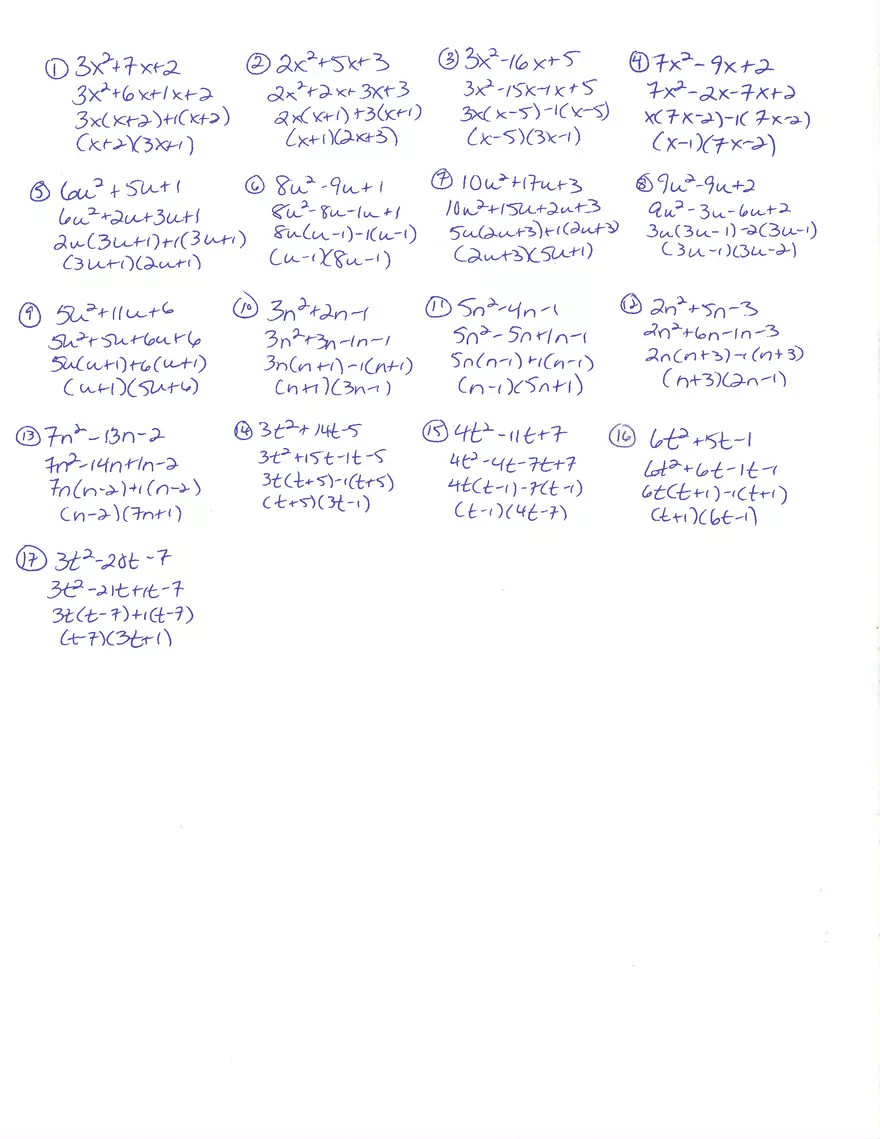 ① 3x²+7x+2
3x²+6x+1x+2
3x(x+2)+1(x+2)
(x+2)(3x+1)
② 2x²+5x+3
2x²+2x+3x+3
2x(x+1)+3(x+1)
(x+1)(2x+3)
③ 3x²-16x+5
3x²-15x-1x+5
3x(x-5)-1(x-5)
(x-5)(3x-1)
④ 7x²-9x+2
7x²-2x-7x+2
x(7x-2)-1(7x-2)
(x-1)(7x-2)
⑤ 6u²+5u+1
6u²+2u+3u+1
2u(3u+1)+1(3u+1)
(3u+1)(2u+1)
⑥ 8u²-9u+1
8u²-8u-1u+1
8u(u-1)-1(u-1)
(u-1)(8u-1)
⑦ 10u²+17u+3
10u²+15u+2u+3
5u(2u+3)+1(2u+3)
(2u+3)(5u+1)
⑧ 9u²-9u+2
9u²-3u-6u+2
3u(3u-1)-2(3u-1)
(3u-1)(3u-2)
⑨ 5u²+11u+6
5u²+5u+6u+6
5u(u+1)+6(u+1)
(u+1)(5u+6)
⑩ 3n²+2n-1
3n²+3n-1n-1
3n(n+1)-1(n+1)
(n+1)(3n-1)
⑪ 5n²-4n-1
5n²-5n+1n-1
5n(n-1)+1(n-1)
(n-1)(5n+1)
⑫ 2n²+5n-3
2n²+6n-1n-3
2n(n+3)-1(n+3)
(n+3)(2n-1)
⑬ 7n²-13n-2
7n²-14n+1n-2
7n(n-2)+1(n-2)
(n-2)(7n+1)
⑭ 3t²+14t-5
3t²+15t-1t-5
3t(t+5)-1(t+5)
(t+5)(3t-1)
⑮ 4t²-11t+7
4t²-4t-7t+7
4t(t-1)-7(t-1)
(t-1)(4t-7)
⑯ 6t²+5t-1
6t²+6t-1t-1
6t(t+1)-1(t+1)
(t+1)(6t-1)
⑰ 3t²-20t-7
3t²-21t+1t-7
3t(t-7)+1(t-7)
(t-7)(3t+1)